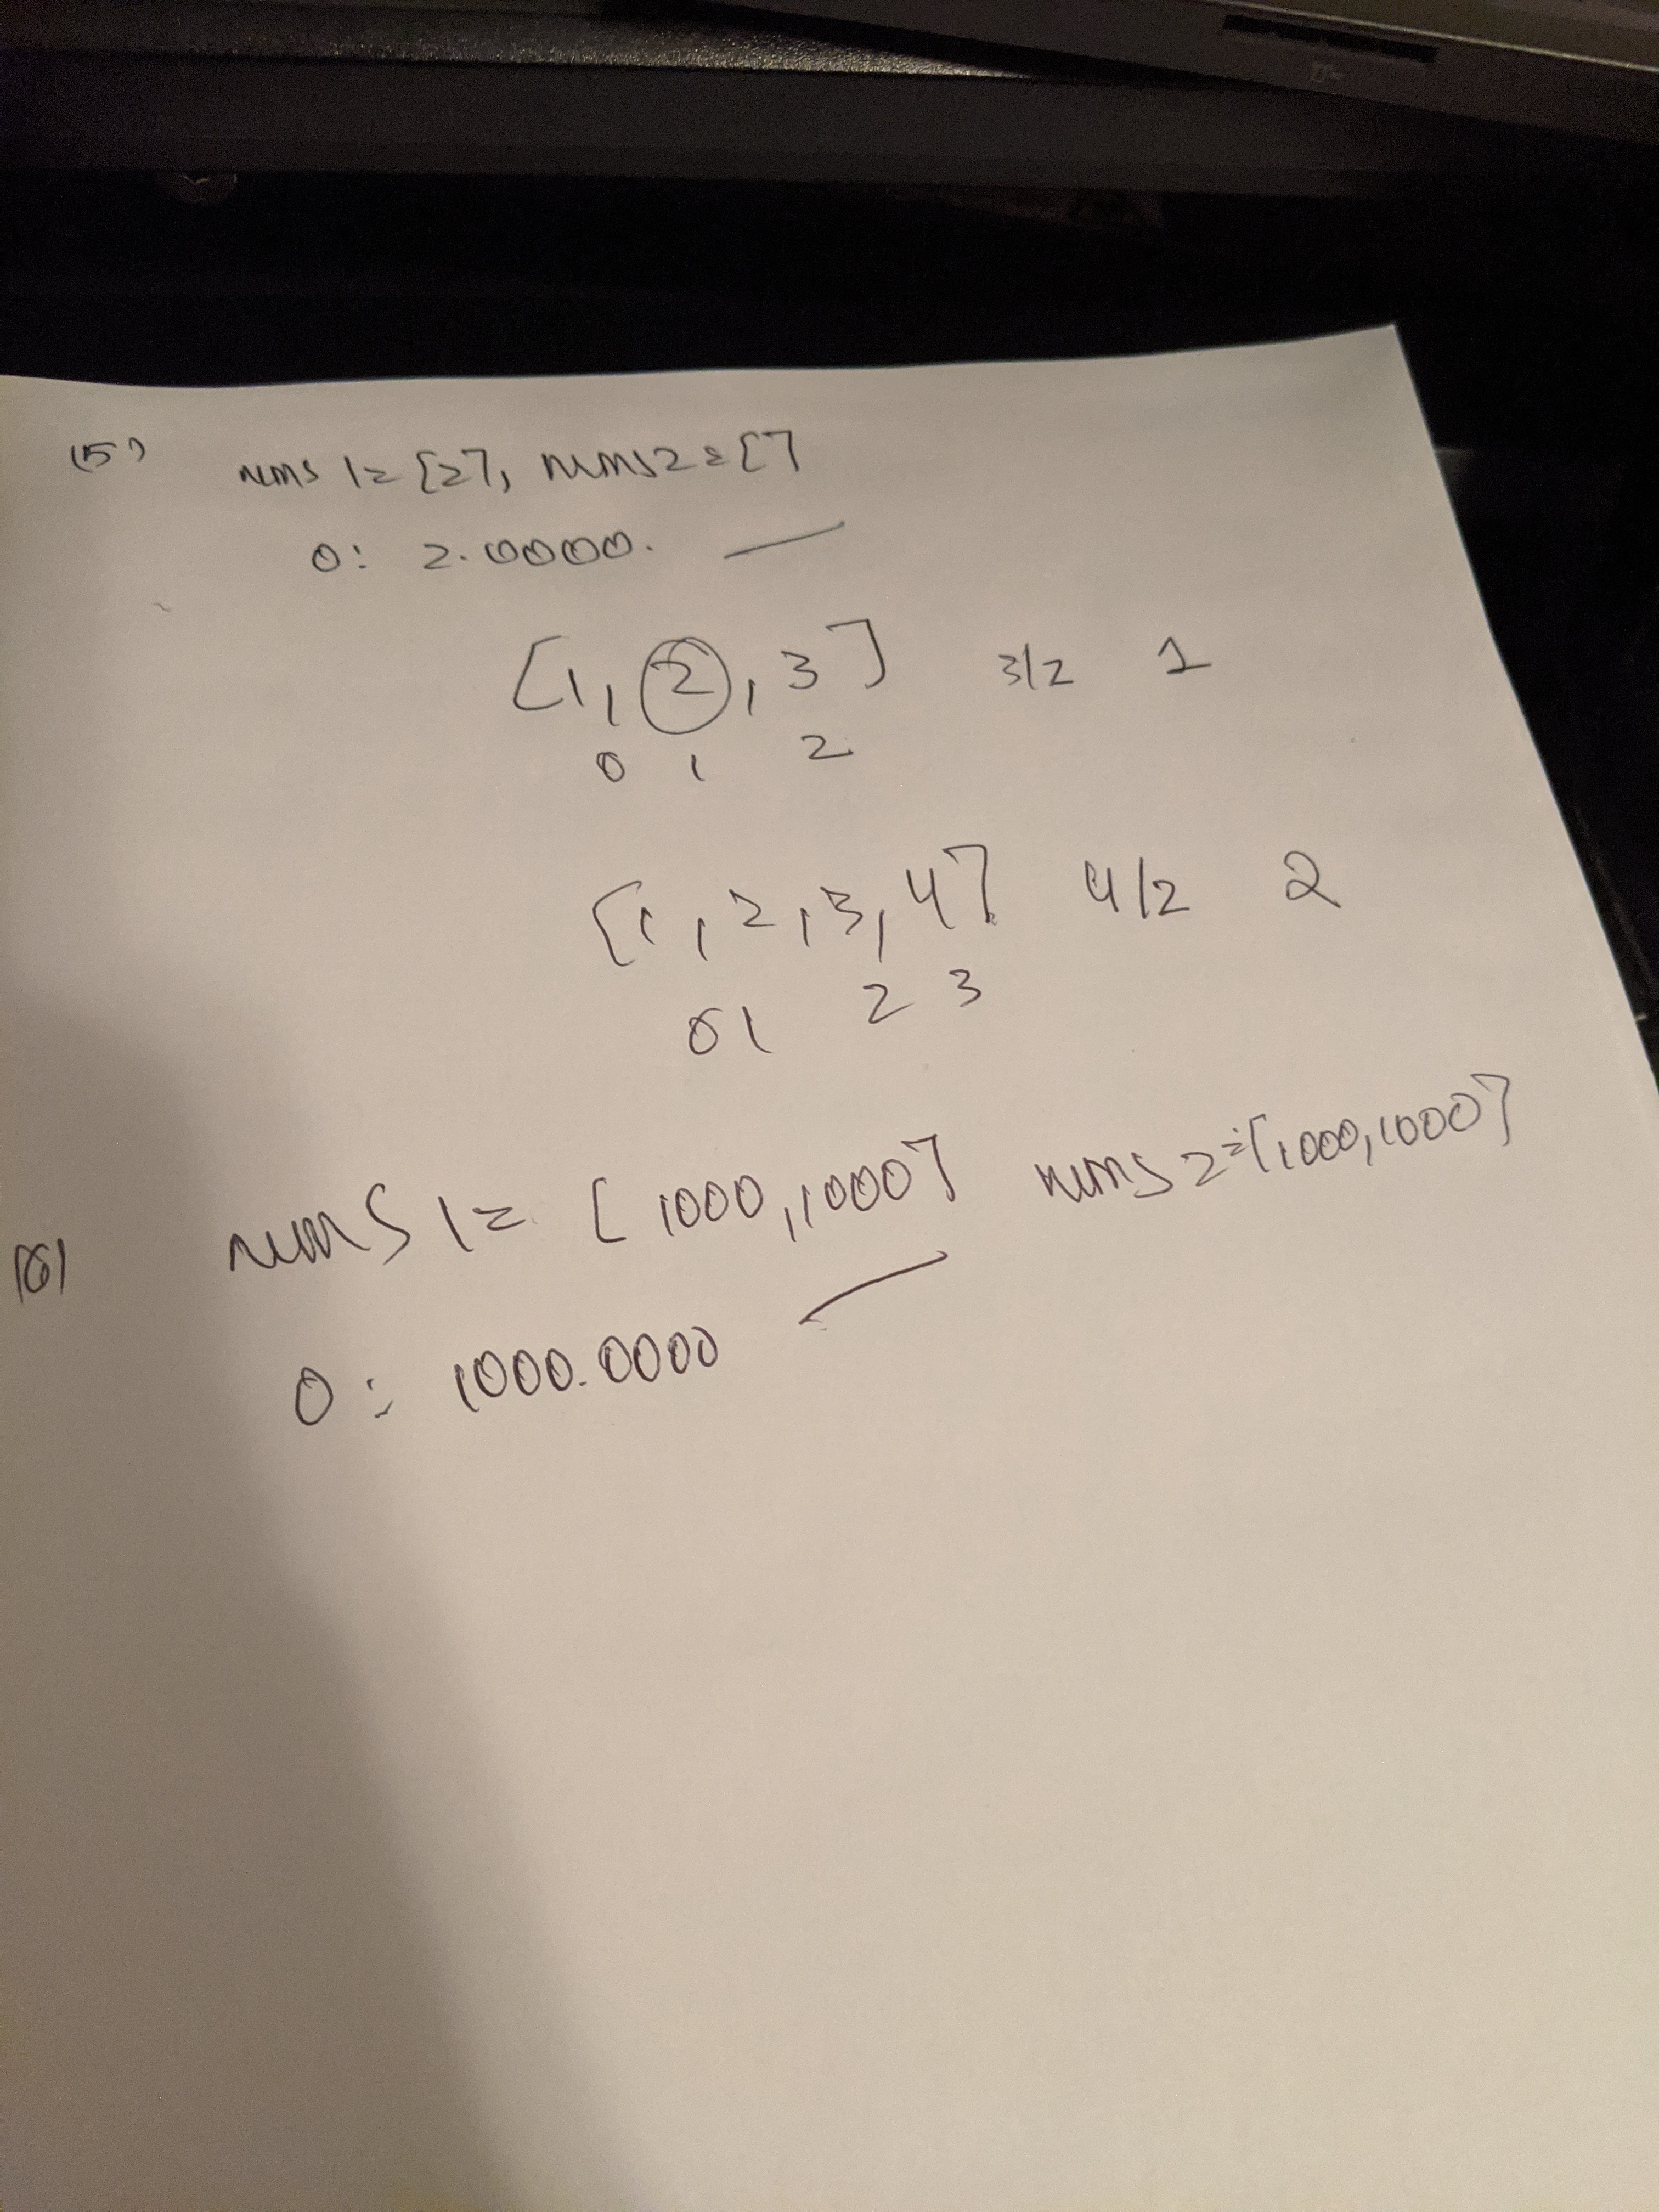 (5) nums 1= [2], nums2=[]
O: 2.0000.
[1, 2, 3] 3/2 1
0 1 2
[1, 2, 3, 4] 4/2 2
0 1 2 3
(6) nums 1= [1000, 1000] nums 2=[1000, 1000]
O: 1000.0000